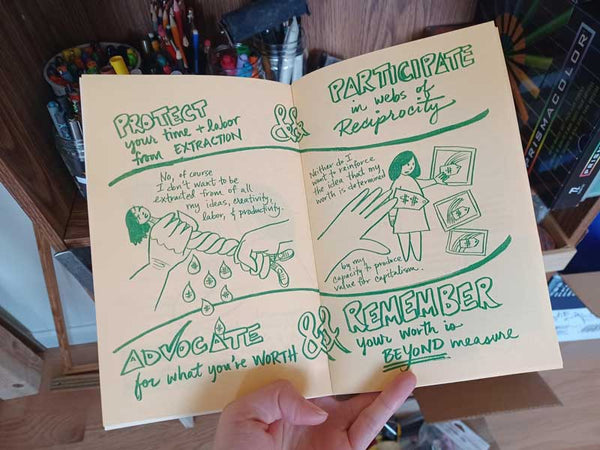 PROTECT
your time + labor
from EXTRACTION
&
PARTICIPATE
in webs of
Reciprocity
No, of course
I don't want to be
extracted from of all
my ideas, creativity,
labor, & productivity.
Neither do I
want to reinforce
the idea that my
worth is determined
by my
capacity to produce
value for capitalism.
$$
$$
$$
$$
ADVOCATE
for what you're WORTH
&
REMEMBER
your worth is
BEYOND measure
PRISMACOLOR